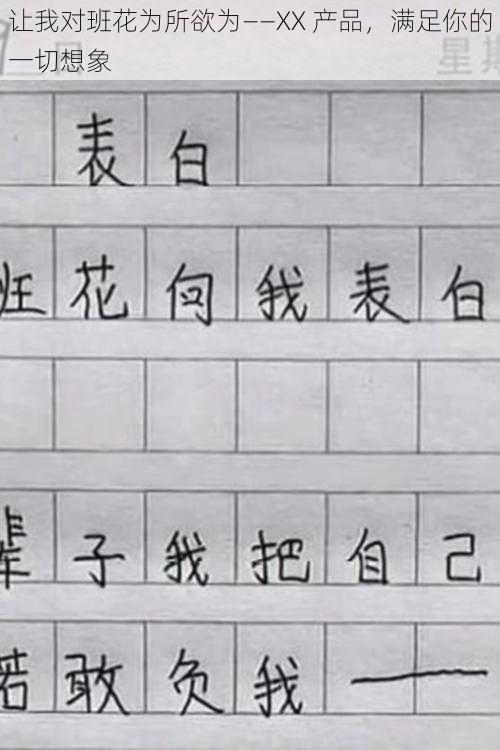 让我对班花为所欲为——XX 产品，满足你的
一切想象
表白
班花向我表白
辈子我把自己
若敢负我——